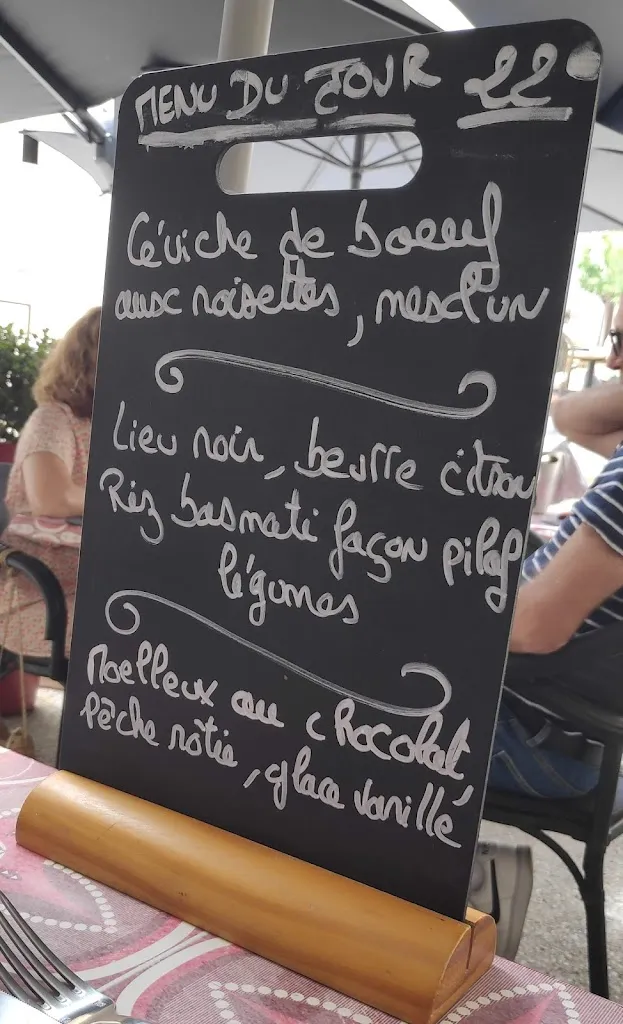 MENU DU JOUR 22
Céviche de boeuf
aux noisettes, mesclun
Lieu noir, beurre citron
Riz basmati façon pilaf
légumes
Moelleux au chocolat,
Pêche rôtie, glace vanille